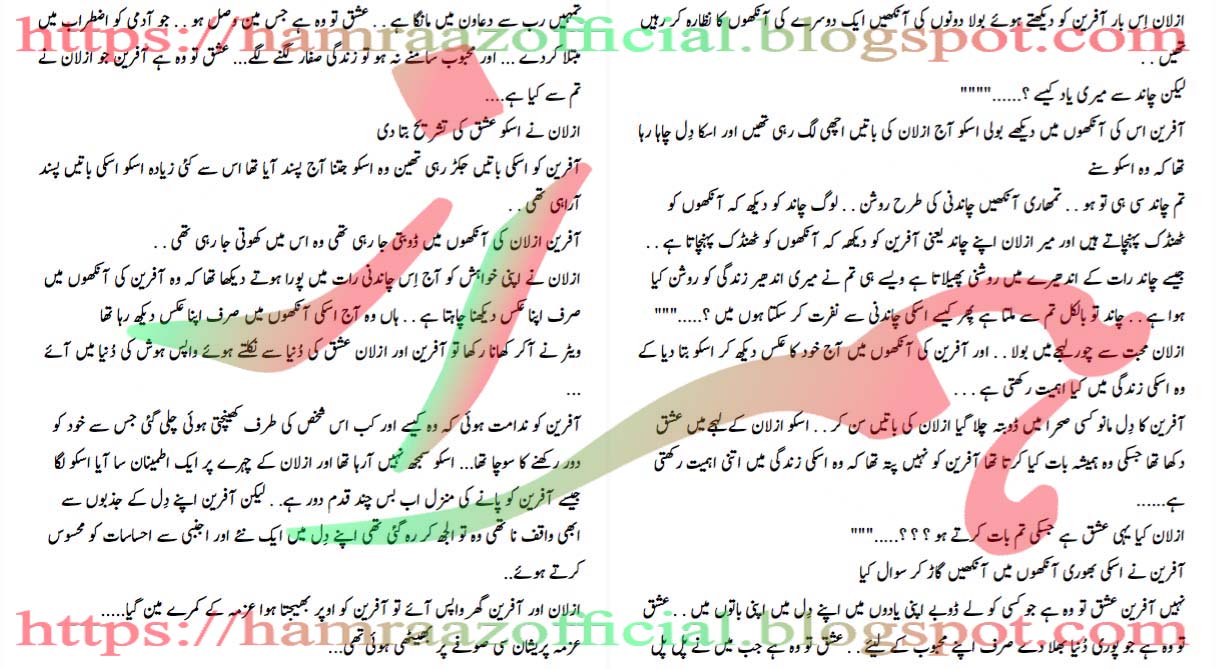 https://hamraazofficial.blogspot.com
ازلان اِس بار آفرین کو دیکھتے ہوئے بولا دونوں کی آنکھیں ایک دوسرے کی آنکھوں کا نظارہ کر رہیں
تھیں . .
لیکن چاند سے میری یاد کیسے ؟......""""
آفرین اس کی آنکھوں میں دیکھے بولی اسکو آج ازلان کی باتیں اچھی لگ رہی تھیں اور اسکا دِل چاہا رہا
تھا کہ وہ اسکو سنے
تم چاند سی ہی تو ہو . . تمھاری آنکھیں چاندنی کی طرح روشن . . لوگ چاند کو دیکھ کہ آنکھوں کو
ٹھنڈک پہنچاتے ہیں اور میر ازلان اپنے چاند یعنی آفرین کو دیکھہ کہ آنکھوں کو ٹھنڈک پہنچاتا ہے . .
جیسے چاند رات کے اندھیرے میں روشنی پھیلاتا ہے ویسے ہی تم نے میری اندھیر زندگی کو روشن کیا
ہوا ہے . . چاند تو بالکل تم سے ملتا ہے پھر کیسے اسکی چاندنی سے نفرت کر سکتا ہوں میں ؟....."""
ازلان محبت سے چور لہجے میں بولا . . اور آفرین کی آنکھوں میں آج خود کا عکس دیکھ کر اسکو بتا دیا کے
وہ اسکی زندگی میں کیا اہمیت رکھتی ہے . . .
آفرین کا دِل مانو کسی صحرا میں ڈوبتہ چلا گیا ازلان کی باتیں سن کر . . اسکو ازلان کے لہجے میں عشق
دکھا تھا جسکی وہ ہمیشہ بات کیا کرتا تھا آفرین کو نہیں پتہ تھا کہ وہ اسکی زندگی میں اتنی اہمیت رکھتی
ہے......
ازلان کیا یہی عشق ہے جسکی تم بات کرتے ہو ؟ ؟ ؟....."""
آفرین نے اسکی بھوری آنکھوں میں آنکھیں گاڑ کر سوال کیا
نہیں آفرین عشق تو وہ ہے جو کسی کو لے ڈوبے اپنی یادوں میں اپنے دِل میں اپنی باتوں میں . . عشق
تو وہ ہے جو پوری دُنیا بھلا دے صرف اپنے محبوب کے لیئے . . عشق تو وہ ہے جب میں نے پل پل
https://hamraazofficial.blogspot.com
تمہیں رب سے دعاون میں مانگا ہے . . عشق تو وہ ہے جس مین وصل ہو . . جو آدمی کو اضطراب میں
مبتلا کردے ... اور محبوب سامنے نہ ہو تو زندگی صفار لگنے لگے... عشق تو وہ ہے آفرین جو ازلان نے
تم سے کیا ہے....
ازلان نے اسکو عشق کی تشریح بتا دی
آفرین کو اسکی باتیں جکڑ رہی تھین وہ اسکو جتنا آج پسند آیا تھا اس سے کئی زیادہ اسکو اسکی باتیں پسند
آراہی تھی . .
آفرین ازلان کی آنکھوں میں ڈوبتی جا رہی تھی وہ اس میں کھوتی جا رہی تھی . .
ازلان نے اپنی خواہش کو آج اِس چاندنی رات میں پورا ہوتے دیکھا تھا کہ وہ آفرین کی آنکھوں میں
صرف اپنا عکس دیکھنا چاہتا ہے . . ہاں وہ آج اسکی آنکھوں میں صرف اپنا عکس دیکھ رہا تھا
ویٹر نے آکر کھانا رکھا تو آفرین اور ازلان عشق کی دُنیا سے نکلتے ہوئے واپس ہوش کی دُنیا میں آئے
...
آفرین کو ندامت ہوئی کہ وہ کیسے اور کب اس شخص کی طرف کھینچتی ہوئی چلی گئی جس سے خود کو
دور رکھنے کا سوچا تھا... اسکو سمجھ نہیں آرہا تھا اور ازلان کے چہرے پر ایک اطمینان سا آیا اسکو لگا
جیسے آفرین کو پانے کی منزل اب بس چند قدم دور ہے. . لیکن آفرین اپنے دِل کے جذبوں سے
ابھی واقف نا تھی وہ تو الجھ کر رہ گئی تھی اپنے دِل میں ایک نئے اور اجنبی سے احساسات کو محسوس
کرتے ہوئے..
ازلان اور آفرین گھر واپس آئے تو آفرین کو اوپر بھیجتا ہوا عزمہ کے کمرے مین گیا.....
عزمہ پریشان سی صوفے پر بھیٹھی ہوئی تھی...
ہمراز